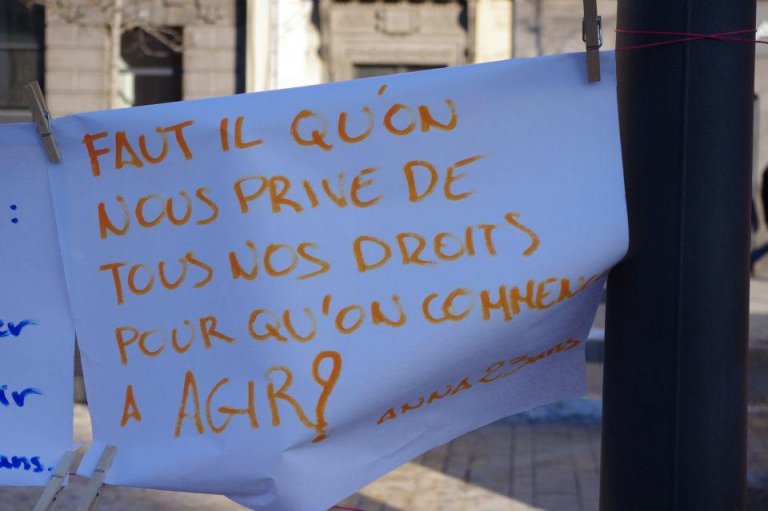 FAUT IL QU'ON
NOUS PRIVE DE
TOUS NOS DROITS
POUR QU'ON COMMENC
A AGIR?
ANNA 23 ans
:
er
ir
ans.